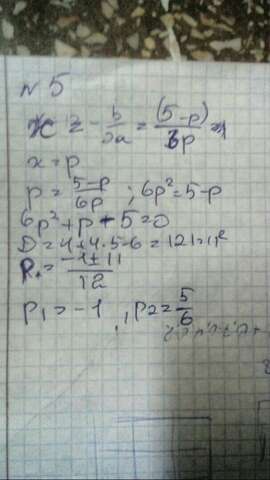 №5
x = -b/2a = (5-p)/6p =
x = p
p = 5-p/6p ; 6p² = 5-p
6p² + p - 5 = 0
D = 1+4·5·6 = 121 = 11²
p = -1±11/12
p₁ = -1 , p₂ = 5/6